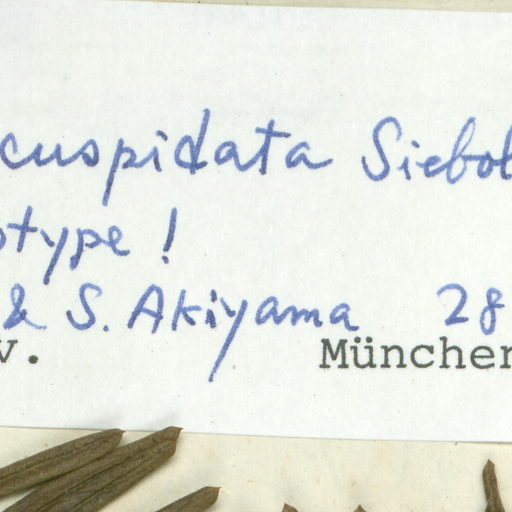 cuspidata Siebol
otype !
& S. Akiyama 28
v. München